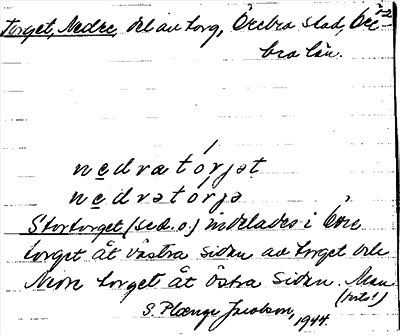 Torget, Nedre, del av torg, Örebro stad, Öre-
bro län.
nedrə tórjət
nedrə tórjə
Stortorget (se d. o.) indelades i Övre
torget åt västra sidan av torget och
Nedre torget åt östra sidan.
(utt!)
S. Plænge Jacobson, 1944.